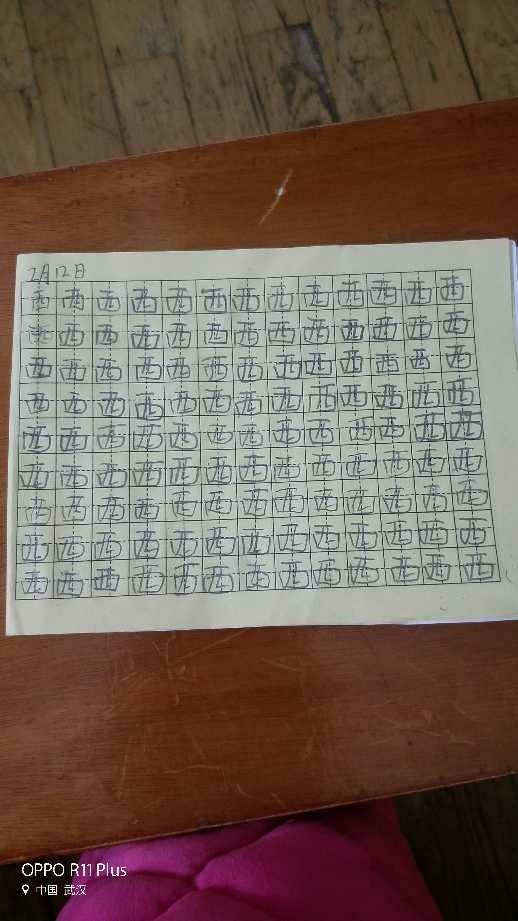 2月12日
西西西西西西西西西西西西西
西西西西西西西西西西西西西
西西西西西西西西西西西西西
西西西西西西西西西西西西西
西西西西西西西西西西西西西
西西西西西西西西西西西西西
西西西西西西西西西西西西西
西西西西西西西西西西西西西
西西西西西西西西西西西西西
OPPO R11 Plus
中国 武汉